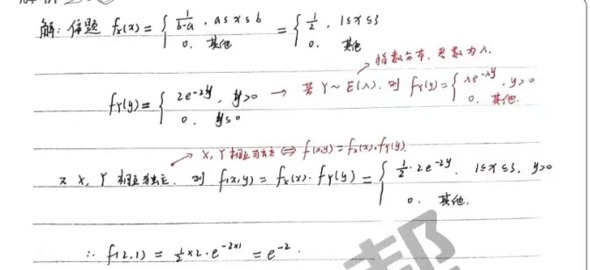 解：依题 fx(x) = { 1/(b-a), a≤x≤b  0, 其他 = { 1/2, 1≤x≤3  0, 其他
指数分布, 参数为λ.
fY(y) = { 2e^(-2y), y>0  0, y≤0 → 若Y~E(λ), 则 fY(y) = { λe^(-λy), y>0  0, 其他.
X, Y 相互独立 ⇔ f(x,y) = fx(x)·fY(y)
又 X, Y 相互独立, 则 f(x,y) = fx(x)·fY(y) = { 1/2·2e^(-2y), 1≤x≤3, y>0  0, 其他.
∴ f(2,1) = 1/2×2·e^(-2×1) = e^(-2).
帮